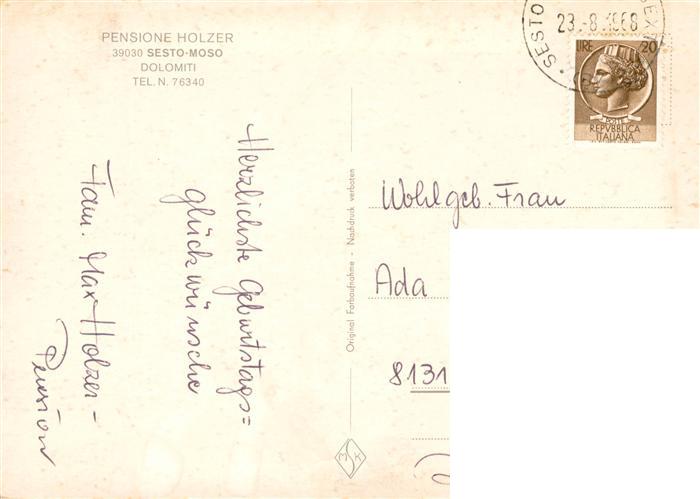 PENSIONE HOLZER
39030 SESTO-MOSO
DOLOMITI
TEL. N. 76340
Herzlichste Geburtstags=
glückwünsche
Fam. Max Holzer-
Pension
Original Farbaufnahme - Nachdruck verboten
MSK
SESTO
23.-8.1968
LIRE 20
POSTE
REPVBBLICA
ITALIANA
Wohlgeb. Frau
Ada
8131